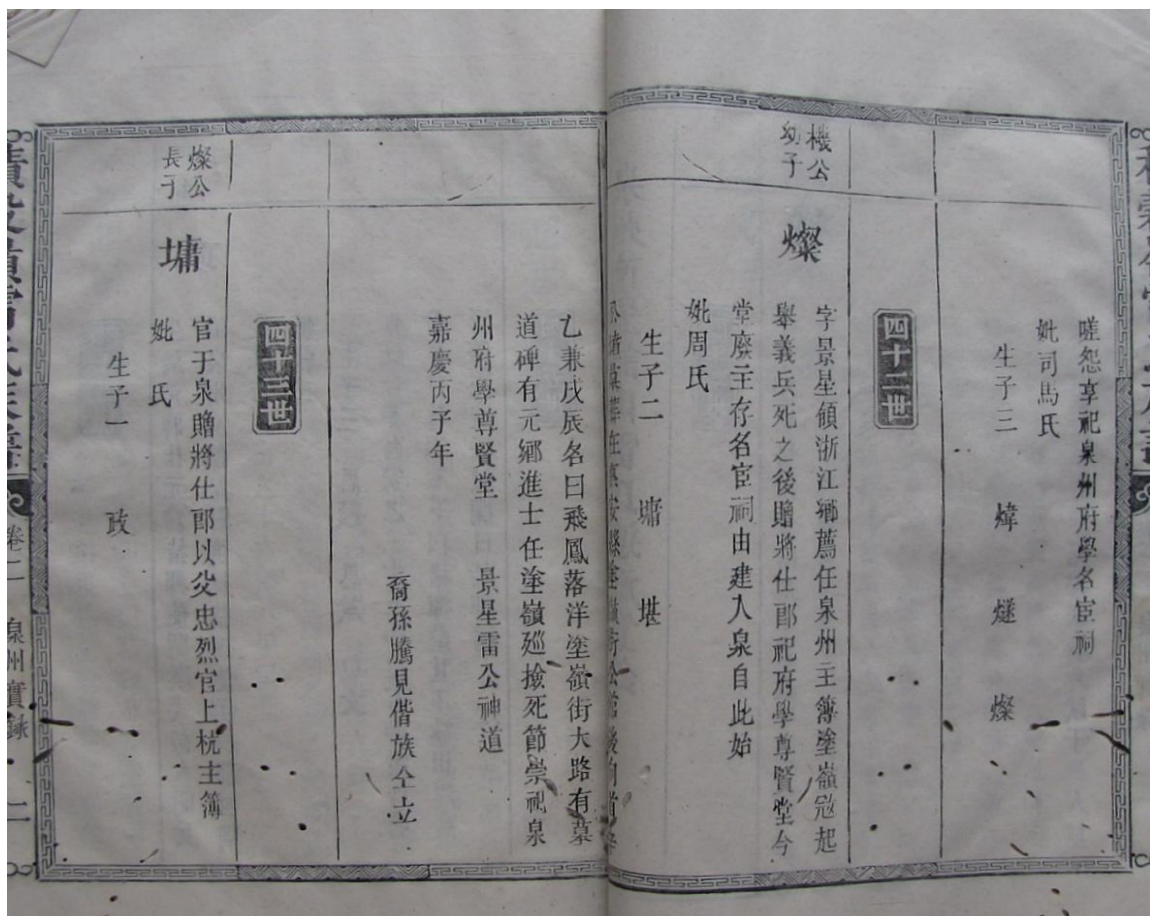 嗟怨享祀泉州府學名宦祠
妣司馬氏
生子三 煒 燧 燦
四十二世
機公
幼子
燦
字景星領浙江鄉薦任泉州主簿塗嶺冦起
舉義兵死之後贈將仕郎祀府學尊賢堂今
堂廢主存名宦祠由建入泉自此始
妣周氏
生子二 墉 堪
乙兼戌辰名曰飛鳳落洋塗嶺街大路有墓
道碑有元鄉進士任塗嶺廵撿死節崇祀泉
州府學尊賢堂 景星雷公神道
嘉慶丙子年
裔孫騰見偕族仝立
四十三世
燦公
長子
墉
官于泉贈將仕郎以父忠烈官上杭主簿
妣 氏
生子一 政
卷二 泉州實錄 二